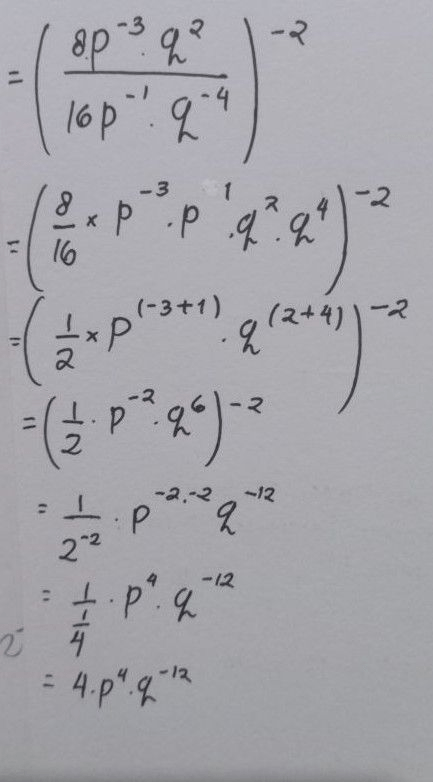 = (8p⁻³ · q² / 16p⁻¹ · q⁻⁴)⁻²
= (8/16 × p⁻³ · p¹ · q² · q⁴)⁻²
= (1/2 × p⁽⁻³⁺¹⁾ · q⁽²⁺⁴⁾)⁻²
= (1/2 · p⁻² · q⁶)⁻²
= 1/2⁻² · p⁻²·⁻² q⁻¹²
= 1/(1/4) · p⁴ · q⁻¹²
= 4 · p⁴ · q⁻¹²